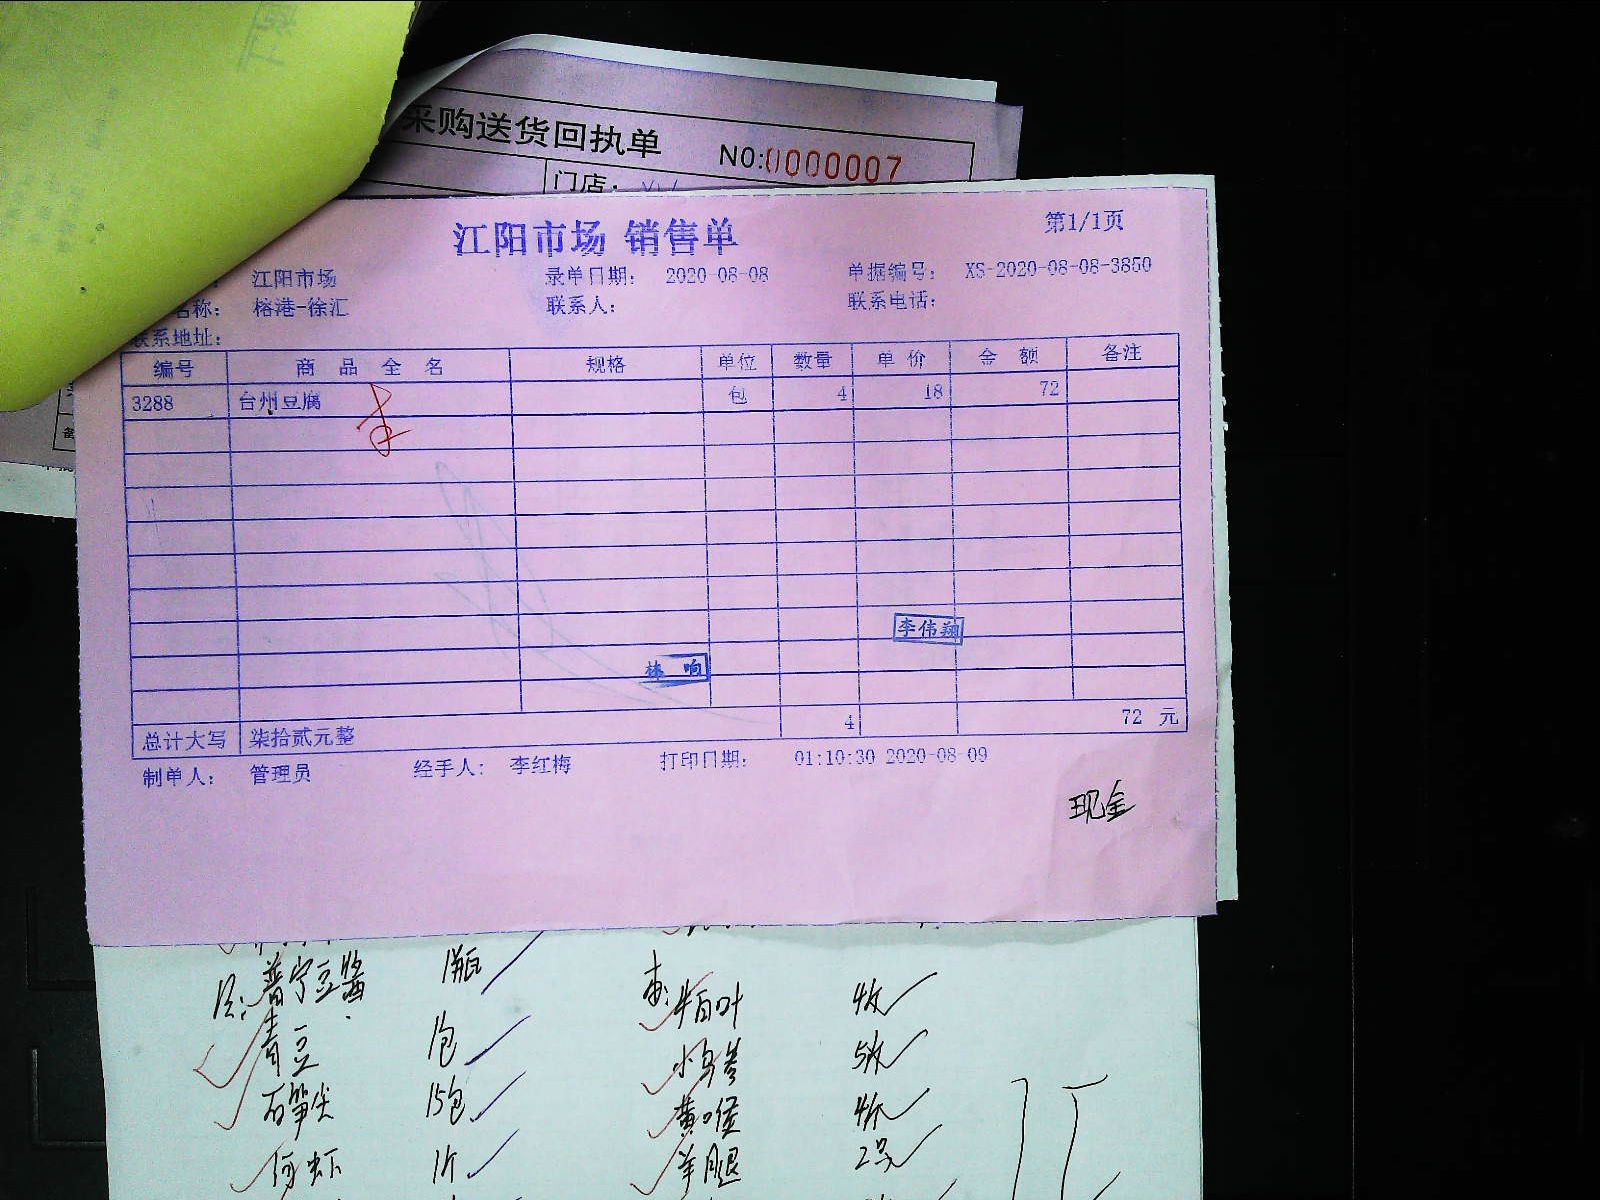 采购送货回执单 NO:0000007
门店:
江阳市场 销售单 第1/1页
江阳市场 录单日期: 2020-08-08 单据编号: XS-2020-08-08-3850
名称: 榕港-徐汇 联系人: 联系电话:
联系地址:
编号 商品全名 规格 单位 数量 单价 金额 备注
3288 台州豆腐 包 4 18 72
李伟翔
总计大写 柒拾贰元整 4 72 元
制单人: 管理员 经手人: 李红梅 打印日期: 01:10:30 2020-08-09
现金
普宁豆酱 1瓶
牛百叶 4
青豆 1包
5
石笋尖 15包
黄喉 4斤
河虾 1斤
羊腿 2只